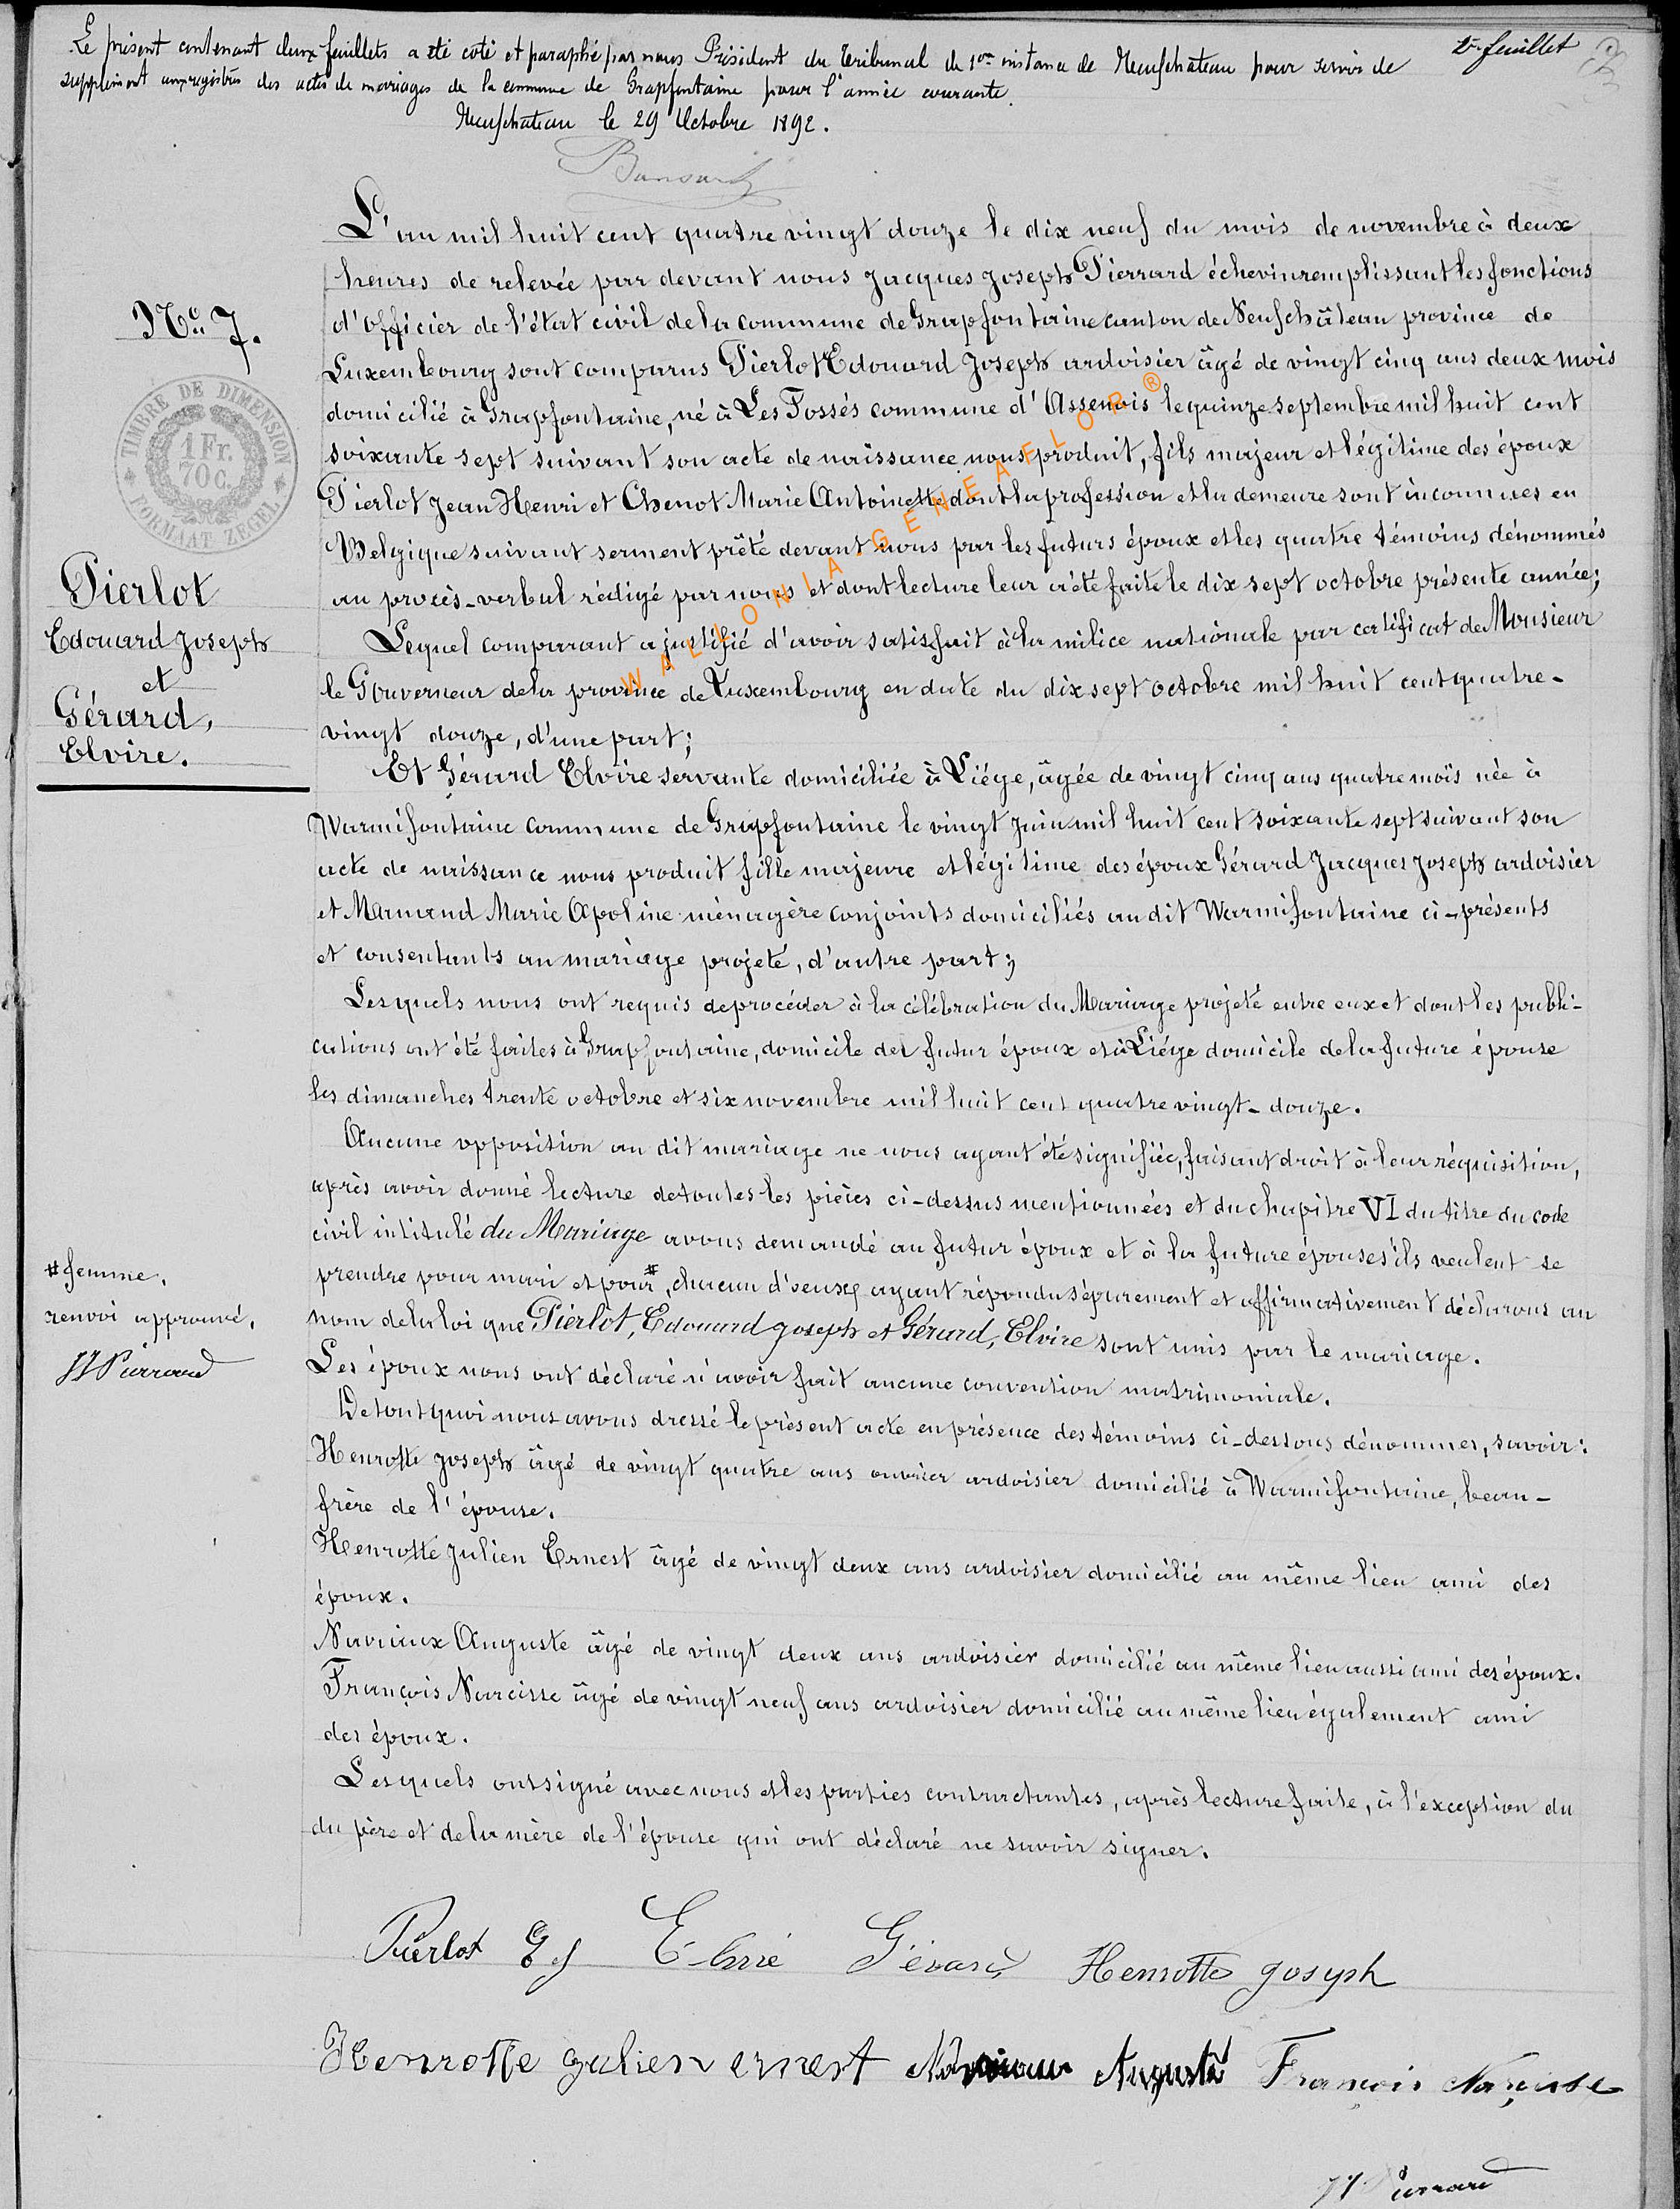 Le présent contenant deux feuillets a été coté et paraphé par nous Président du Tribunal de 1ere instance de Neufchateau pour servir de
1er feuillet
supplément aux registres des actes de mariages de la commune de Grapfontaine pour l'année courante.
Neufchateau le 29 Octobre 1892.
L'an mil huit cent quatre vingt douze le dix neuf du mois de novembre à deux
heures de relevée par devant nous Jacques Joseph Pierrard échevin remplissant les fonctions
No 7.
d'officier de l'état civil de la commune de Grapfontaine canton de Neufchâteau province de
Luxembourg sont comparus Pierlot Edouard Joseph ardoisier âgé de vingt cinq ans deux mois
domicilié à Grapfontaine, né à Les Fossés commune d'Assenois le quinze septembre mil huit cent
soixante sept suivant son acte de naissance nous produit, fils majeur et légitime des époux
Pierlot Jean Henri et Chenot Marie Antoinette dont la profession et la demeure sont inconnues en
Belgique suivant serment prêté devant nous par les futurs époux et les quatre témoins dénommés
au procès-verbal rédigé par nous et dont lecture leur a été faite le dix sept octobre présente année;
Lequel comparant a justifié d'avoir satisfait à la milice nationale par certificat de Monsieur
le Gouverneur de la province de Luxembourg en date du dix sept octobre mil huit cent quatre-
vingt douze, d'une part;
TIMBRE DE DIMENSION
1 Fr.
70 c.
FORMAAT ZEGEL
Pierlot
Edouard Joseph
et
Gérard,
Elvire.
Et Gérard Elvire servante domiciliée à Liége, âgée de vingt cinq ans quatre mois née à
Warmifontaine commune de Grapfontaine le vingt juin mil huit cent soixante sept suivant son
acte de naissance nous produit fille majeure et légitime des époux Gérard Jacques Joseph ardoisier
et Marmand Marie Apoline ménagère conjoints domiciliés au dit Warmifontaine ci-présents
et consentants au mariage projeté, d'autre part;
Lesquels nous ont requis de procéder à la célébration du Mariage projeté entre eux et dont les publi-
cations ont été faites à Grapfontaine, domicile del futur époux et à Liége domicile de la future épouse
les dimanches trente octobre et six novembre mil huit cent quatre vingt-douze.
Aucune opposition au dit mariage ne nous ayant été signifiée, faisant droit à leur réquisition,
après avoir donné lecture de toutes les pièces ci-dessus mentionnées et du chapitre VI du titre du code
civil intitulé du Mariage avons demandé au futur époux et à la future épouse s'ils veulent se
prendre pour mari et pour #, chacun d'eux ayant répondu séparement et affirmativement déclarons au
nom de la loi que Pierlot, Edouard Joseph et Gérard, Elvire sont unis par le mariage.
Les époux nous ont déclaré n'avoir fait aucune convention matrimoniale.
# femme,
renvoi approuvé,
JJ Pierrard
De tout quoi nous avons dressé le présent acte en présence des témoins ci-dessous dénommes, savoir:
Henrotte Joseph âgé de vingt quatre ans ouvrier ardoisier domicilié à Warmifontaine, beau-
frère de l'épouse.
Henrotte Julien Ernest âgé de vingt deux ans ardoisier domicilié au même lieu ami des
époux.
Naviaux Auguste âgé de vingt deux ans ardoisier domicilié au même lieu aussi ami des époux.
François Narcisse âgé de vingt neuf ans ardoisier domicilié au même lieu également ami
des époux.
Lesquels ont signé avec nous et les parties contractantes, après lecture faite, à l'exception du
du père et de la mère de l'épouse qui ont déclaré ne savoir signer.
Pierlot E J Elvire Gérard Henrotte Joseph
Henrotte Julien ernest Naviaux Auguste François Narcisse
JJ Pierrard
WALLONIA-GENEAFLOR®